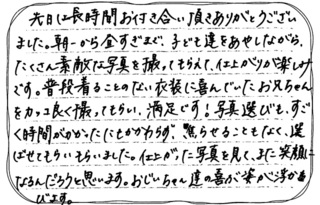 先日は長時間お付き合い頂きありがとうござい
ました。朝一から金すぎまで、子ども達をあやしながら、
たくさん素敵な写真を撮ってもらえて、仕上がりが楽しみ
です。普段着ることのない衣装に喜んでいたお兄ちゃん
をカッコ良く撮ってもらい、満足です!写真選びも、すご
く時間がかかったにもかかわらず、焦らせることもなく、選
ばせてもらいもらいました。仕上がった写真を見て、また笑顔に
なるんだろうと思います。おじいちゃん達の喜ぶ姿が浮かま
びます。